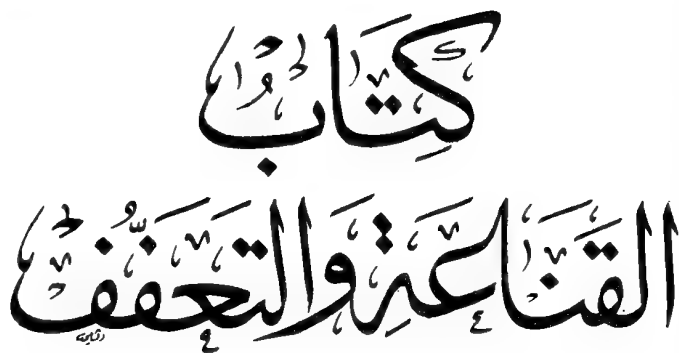 كِتَابُ
القَنَاعَةِ وَالتَّعَفُّفِ